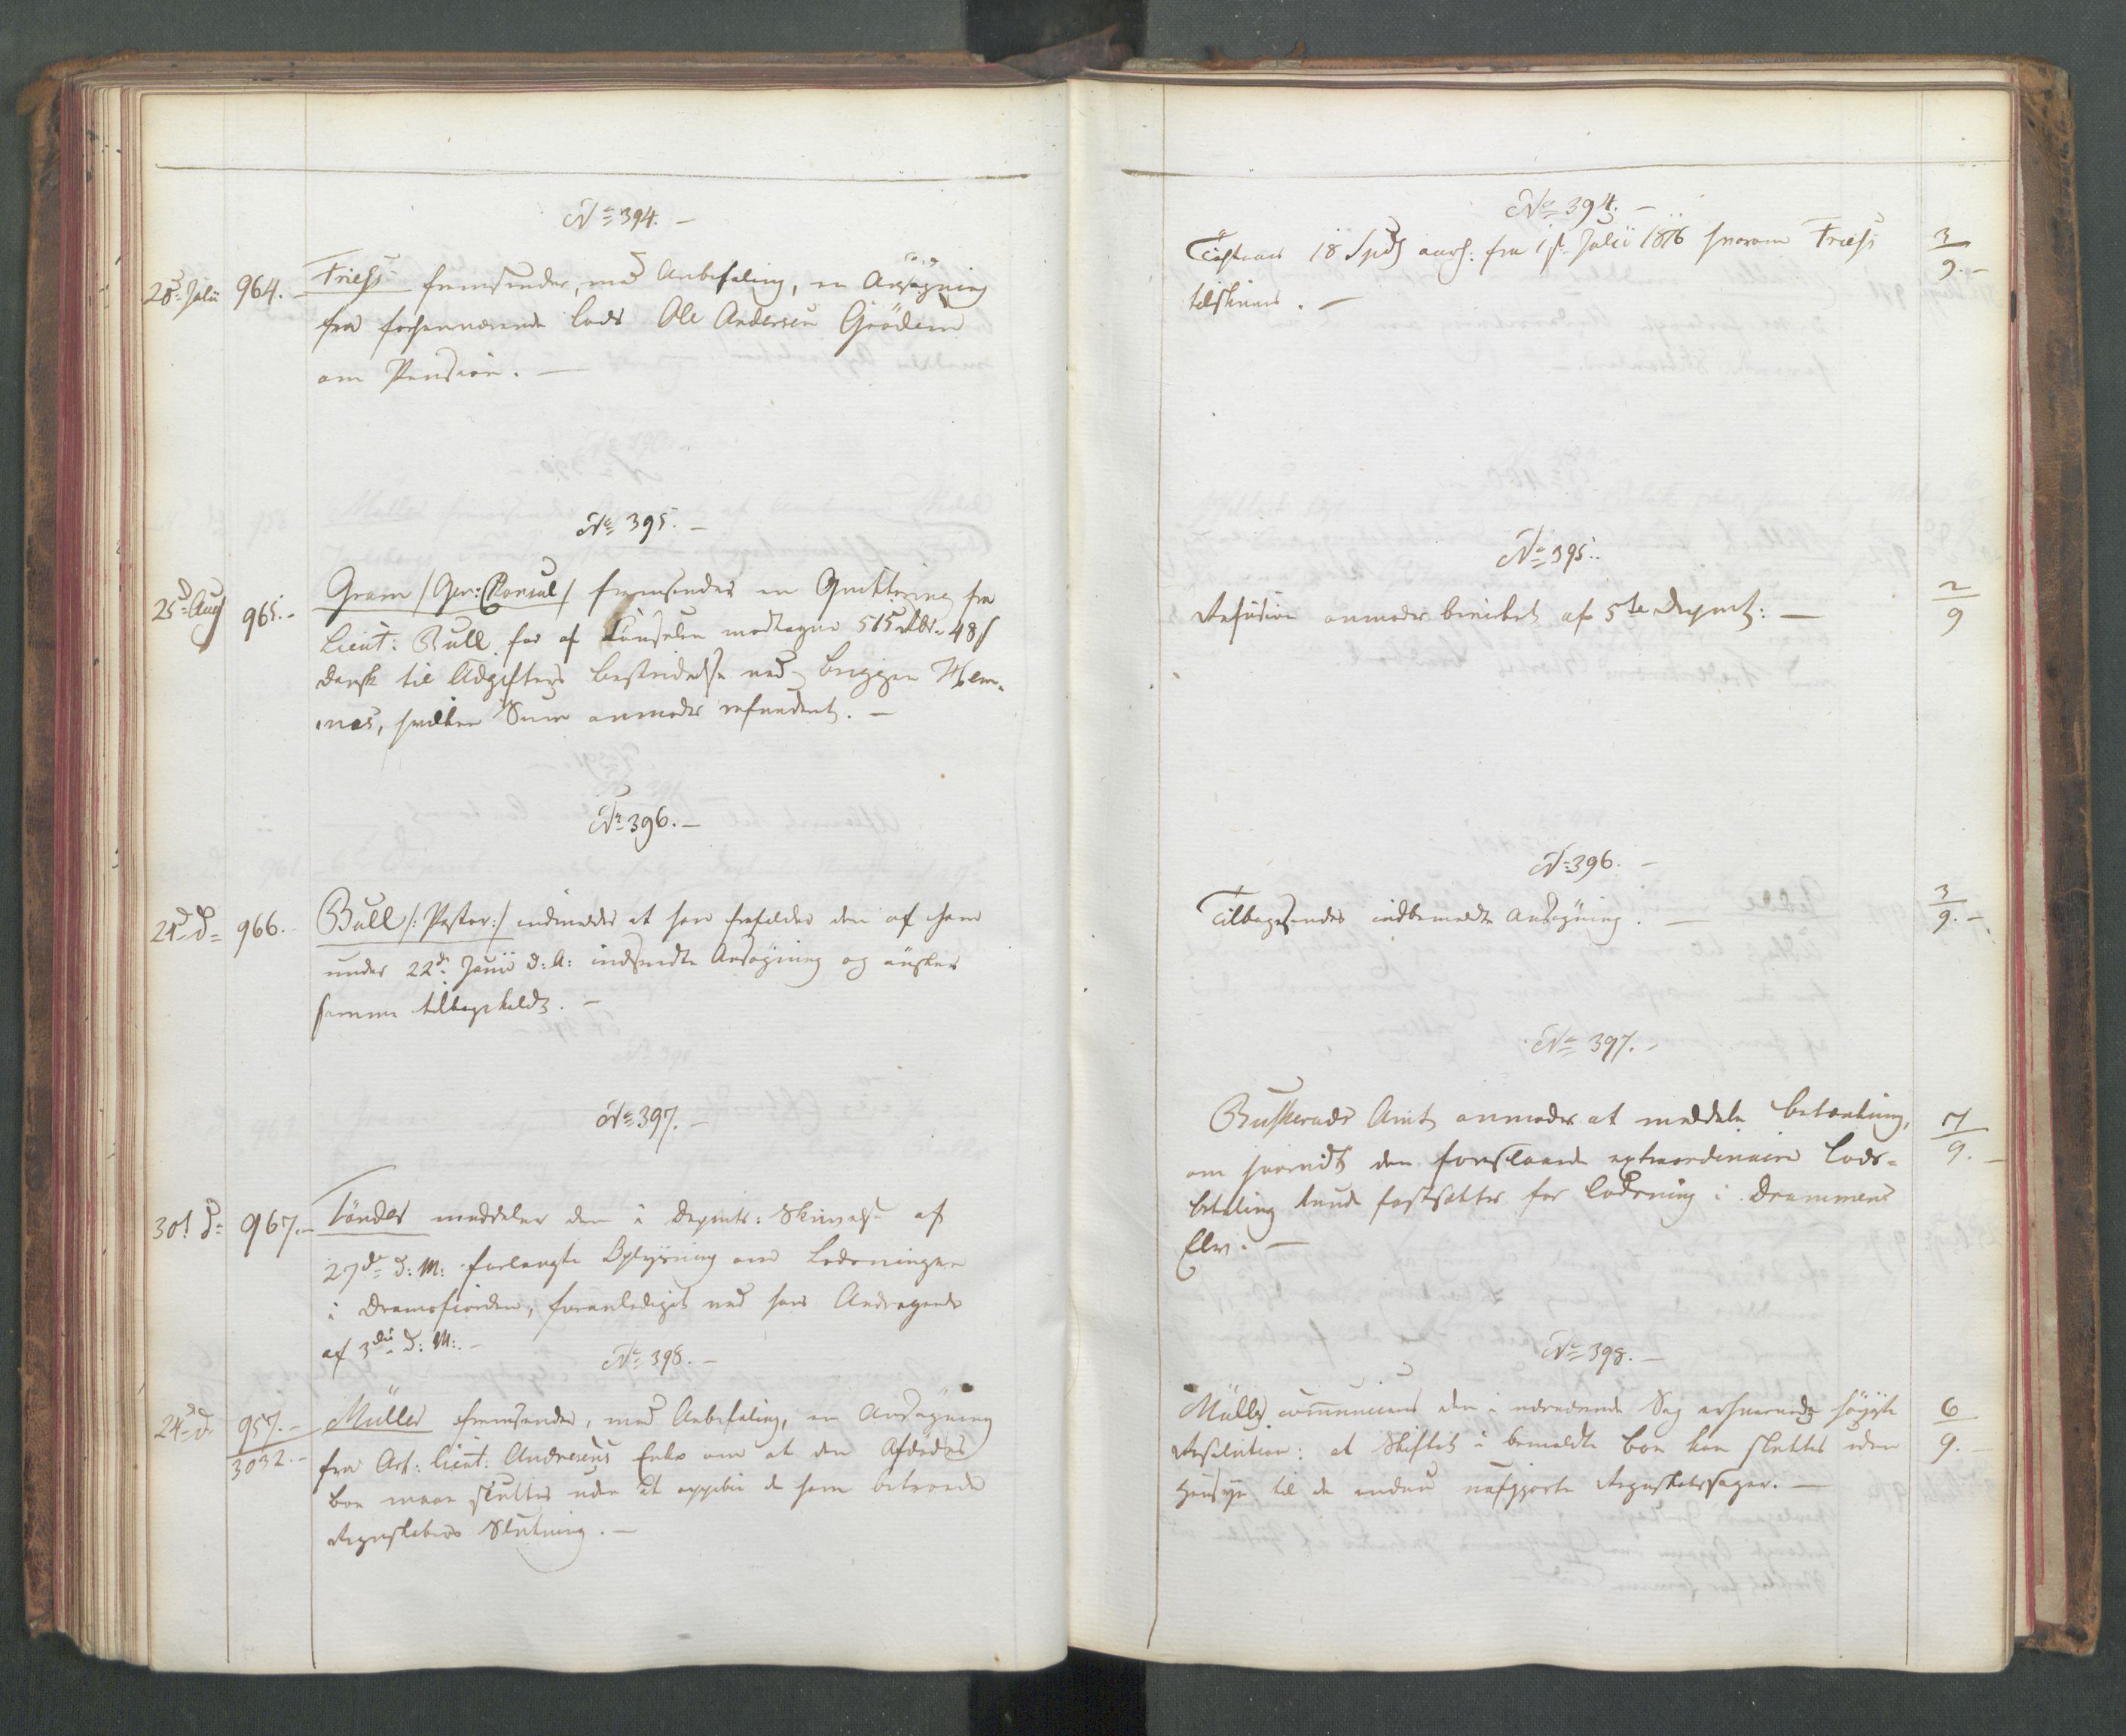 No 394. –
28de Julii 964. – Friess fremsender, med Anbefaling, en Ansøgning
fra forhenværende Lods Ole Andersen Grödem
om Pension. –
No 395. –
25de Aug 965. – Gram /Gen: Consul/ fremsender en Quittering fra
Lieut: Bull for af Consulen modtagne 515 Rbd. 48 s
dansk til Udgifters Bestridelse ved Briggen
hvilken Sum anmodes refunderet. –
No 396. –
21de do 966. Bull /: Pastor :/ indmelder at han frafalder den af ham
under 22de Junii d: A: indsendte Ansøgning og ønsker
samme tilbageholdt. –
No 397. –
30te do 967. – Tönder meddeler den i Depmts: Skrivelse af
27de d: M: forlangte Oplysning om Lodsningen
i Dramsfiorden, foranlediget ved hans Andragende
af 3die d: M: –
No 398. –
24de do 957. – Müller fremsender, med Anbefaling, en Ansøgning
3032. – fra Art: Lieut: Enke om at den Afdødes
Boe maae sluttes uden at oppebie de ham betroede
Regnskabers Slutning. –
No 394. –
Tilstaaes 18 Spd aarl: fra 1ste Julii 1816 hvorom Friess 3/9. –
tilskrives. –
No 395.
Refusion anmodes bevirket af 5te Depmt: – 2/9
No 396. –
Tilbagesendes indbemeldte Ansøgning. – 3/9. –
No 397. –
Buskeruds Amt anmodes at meddele Betænkning, 7/9. –
om hvorvidt den foreslaaede extraordinaire Lods-
betaling kunde fastsættes for Lodsning i Drammens
Elv. –
No 398. –
Müller communiceres den i nærværende Sag erhvervede høieste 6/9. –
Resolution: at Skiftet i bemeldte Boe kan sluttes uden
Hensyn til de endnu uafgjorte Regnskabssager. –